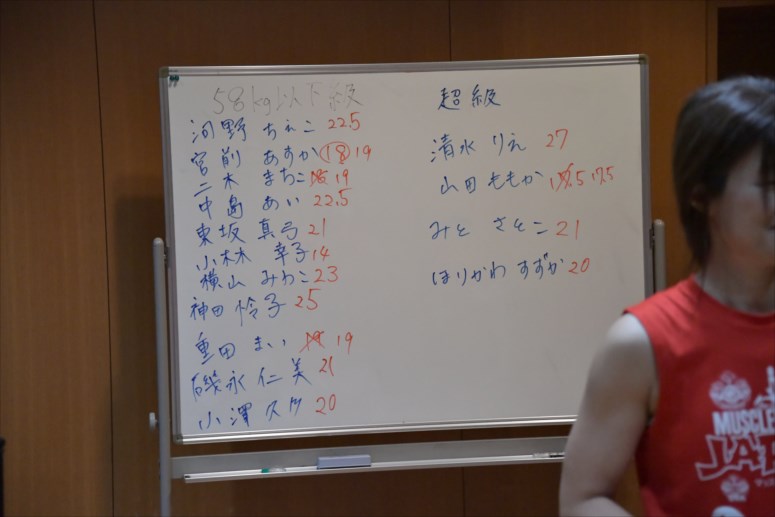 58kg以下級
河野 ちえこ 22.5
宮前 あすか 18 19
二木 まちこ 19
中島 あい 22.5
東坂 真弓 21
小林 幸子 14
横山 みわこ 23
神田 怜子 25
重田 まい 19
磯永 仁美 21
小澤 20
超級
清水 りえ 27
山田 ももか 17.5
みと さとこ 21
ほりかわ すずか 20
MUSCLE
JA